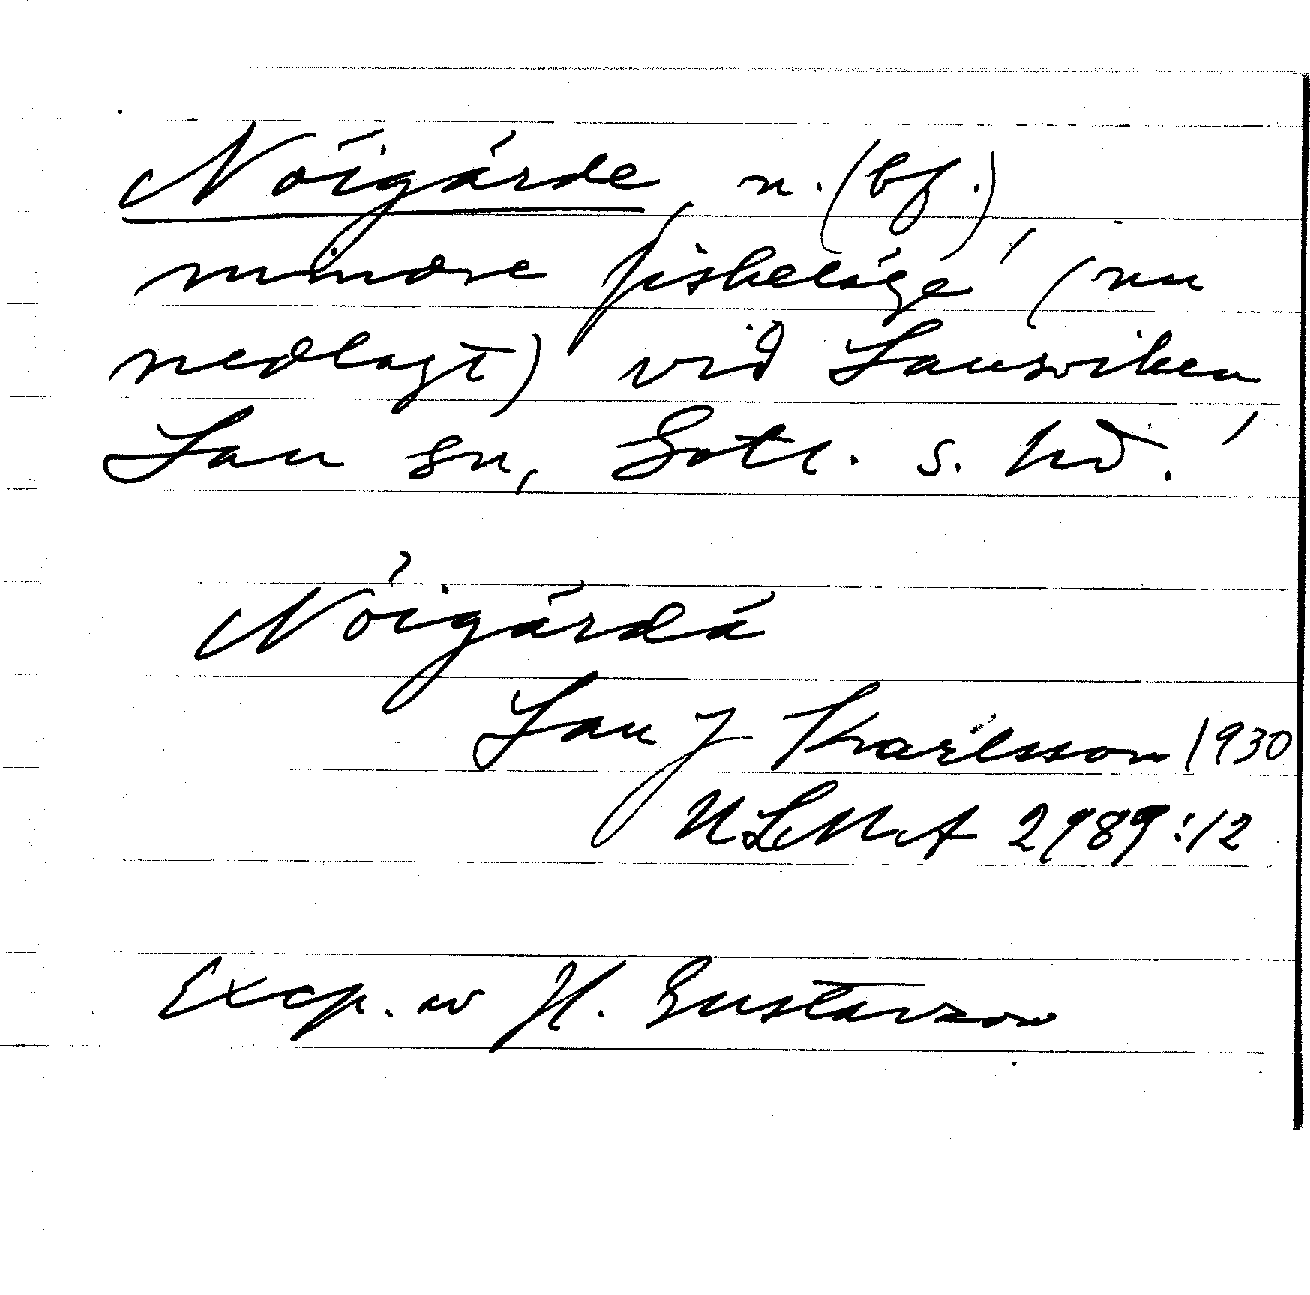 Nöigärde, n. (bf.)
mindre fiskeläge (nu
nedlagt) vid Lausviken,
Lau sn, Gotl. s. hd.
Nöigärdä
Lau J Karlsson 1930
ULMA 2989:12
Excp. av H. Gustavson